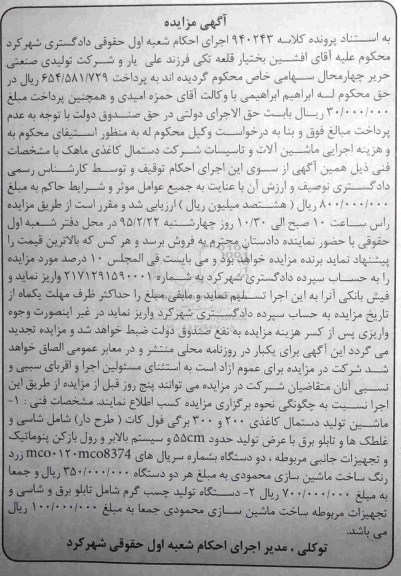 آگهی مزایده
به استناد پرونده کلاسه ۹۴۰۲۴۳ اجرای احکام شعبه اول حقوقی دادگستری شهرکرد
محکوم علیه آقای افشین بختیار قلعه تکی فرزند علی یار و شرکت تولیدی صنعتی
حریر چهارمحال سهامی خاص محکوم گردیده اند به پرداخت ۶۵۴/۵۸۱/۷۲۹ ریال در
حق محکوم له ابراهیم ابراهیمی با وکالت آقای حمزه امیدی و همچنین پرداخت مبلغ
۳۰/۰۰۰/۰۰۰ ریال بابت حق الاجرای دولتی در حق صندوق دولت با توجه به عدم
پرداخت مبالغ فوق و بنا به درخواست وکیل محکوم له به منظور استیفای محکوم به
و هزینه اجرایی ماشین آلات و تاسیسات شرکت دستمال کاغذی ماهک با مشخصات
فنی ذیل همین آگهی از سوی این اجرای احکام توقیف و توسط کارشناس رسمی
دادگستری توصیف و ارزش آن با عنایت به جمیع عوامل موثر و شرایط حاکم به مبلغ
۸۰۰/۰۰۰/۰۰۰ ریال ( هشتصد میلیون ریال ) ارزیابی شد و مقرر است از طریق مزایده
راس ساعت ۱۰ صبح الی ۱۰/۳۰ روز چهارشنبه ۹۵/۲/۲۲ در محل دفتر شعبه اول
حقوقی با حضور نماینده دادستان محترم به فروش برسد و هر کس که بالاترین قیمت را
پیشنهاد نماید برنده مزایده خواهد بود و می بایست فی المجلس ۱۰ درصد مورد مزایده
را به حساب سپرده دادگستری شهرکرد به شماره ۲۱۷۱۲۹۱۵۹۰۰۰۱ واریز نماید و
فیش بانکی آنرا به این اجرا تسلیم نماید و مابقی مبلغ را حداکثر ظرف مهلت یکماه از
تاریخ مزایده به حساب سپرده دادگستری شهرکرد واریز نماید در غیر اینصورت وجوه
واریزی پس از کسر هزینه مزایده به نفع صندوق دولت ضبط خواهد شد و مزایده تجدید
می گردد این آگهی برای یکبار در روزنامه محلی منتشر و در معابر عمومی الصاق خواهد
شد شرکت در مزایده برای عموم ازاد است به استثنای مسئولین اجرا و اقربای سببی و
نسبی آنان متقاضیان شرکت در مزایده می توانند پنج روز قبل از مزایده از طریق این
اجرا نسبت به چگونگی نحوه برگزاری مزایده کسب اطلاع نمایند. مشخصات فنی : ۱-
ماشین تولید دستمال کاغذی ۲۰۰ و ۳۰۰ برگی فول کات ( طرح دار) شامل شاسی و
غلطک ها و تابلو برق با عرض تولید حدود ۵۵cm و سیستم بالابر و رول بازکن پنوماتیک
و تجهیزات جانبی مربوطه ، دو دستگاه بشماره سریال های mco۰۱۲۰mco8374 زرد
رنگ ساخت ماشین سازی محمودی به مبلغ هر دو دستگاه ۳۵۰/۰۰۰/۰۰۰ ریال و جمعا
به مبلغ ۷۰۰/۰۰۰/۰۰۰ ریال ۲- دستگاه تولید چسب گرم شامل تابلو برق و شاسی و
تجهیزات مربوطه ساخت ماشین سازی محمودی جمعا به مبلغ ۱۰۰/۰۰۰/۰۰۰ ریال
می باشد.
توکلی ، مدیر اجرای احکام شعبه اول حقوقی شهرکرد